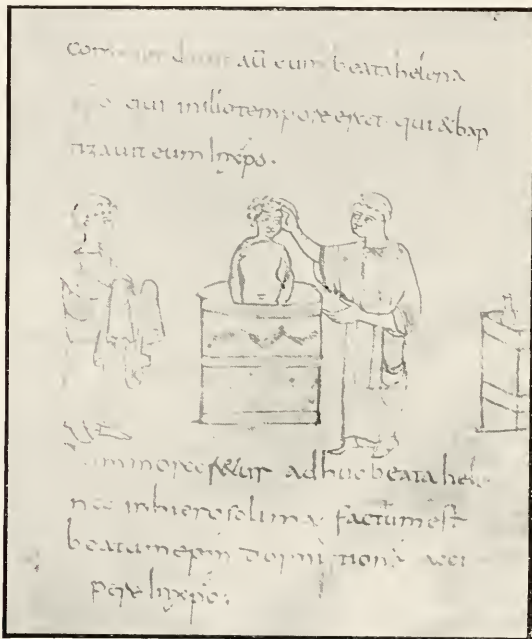 aū eum beata helena
qui in illo tempore erat qui & bap
tizauit eum in xp̄o.
adhuc beata hele
in hierosolima factum est
beatum ep̄m dormitionē acci
pere in xp̄o: